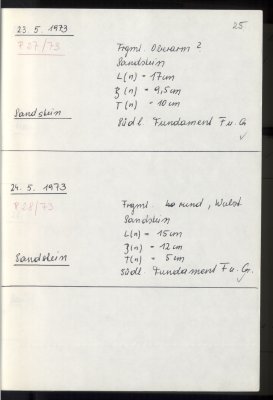 25
23. 5. 1973
P 27/73
Frgmt. Oberarm ?
Sandstein
L(n) = 17cm
B(n) = 9,5cm
T(n) = 10cm
Sandstein
Südl. Fundament F u. Gr.
24. 5. 1973
P 28/73
Frgmt. rund, Wulst
Sandstein
L(n) = 15cm
B(n) = 12cm
T(n) = 5cm
Sandstein
Südl. Fundament F u. Gr.